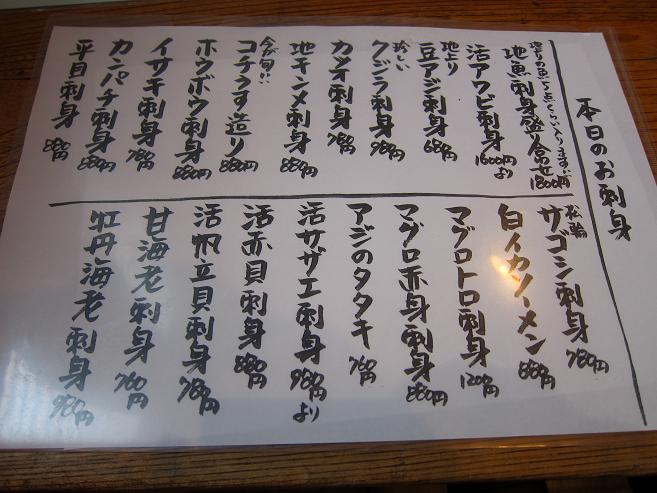 本日のお刺身
造りの魚5点くらい入ります
地魚刺身盛合せ 1800円
活アワビ刺身 1600円より
地より
豆アジ刺身 680円
珍しい
クジラ刺身 980円
カツオ刺身 780円
地キンメ刺身 880円
今が旬
コチうす造り 880円
ホウボウ刺身 880円
イサキ刺身 780円
カンパチ刺身 880円
平目刺身 880円
松輪
サゴシ刺身 780円
白イカソーメン 880円
マグロトロ刺身 1200円
マグロ赤身刺身 880円
アジのタタキ 760円
活サザエ刺身 980円より
活赤貝刺身 880円
活帆立貝刺身 780円
甘海老刺身 760円
牡丹海老刺身 980円